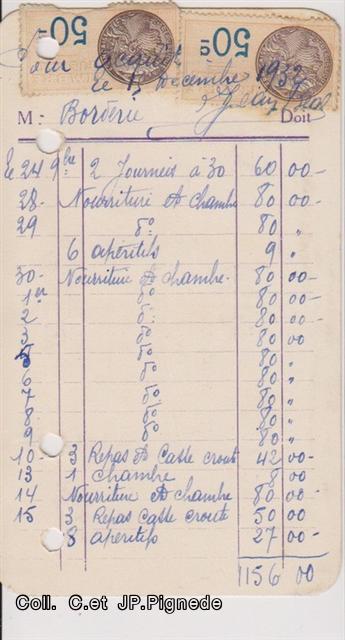 50 c
50 c
Pour acquit
le 15 Décembre 1932
M: Borderie Doit
Le 24 9bre 2 Journées à 30 60 00-
28- Nourriture et chambre 80 00-
29 do 80 "
6 apéritifs 9 "
30- Nourriture et chambre- 80 00-
1er do 80 00-
2 do 80 00-
3 do 80 00
5 do 80 "
6 do 80 "
7 do 80 "
8 do 80 "
9 do 80 "
10 3 Repas et Casse crout 42 00-
13 1 chambre 8 00
14 Nourriture et chambre 80 00-
15 3 Repas Casse croute 50 00
8 apéritifs 27 00-
1156 00
Coll. C.et JP.Pignede